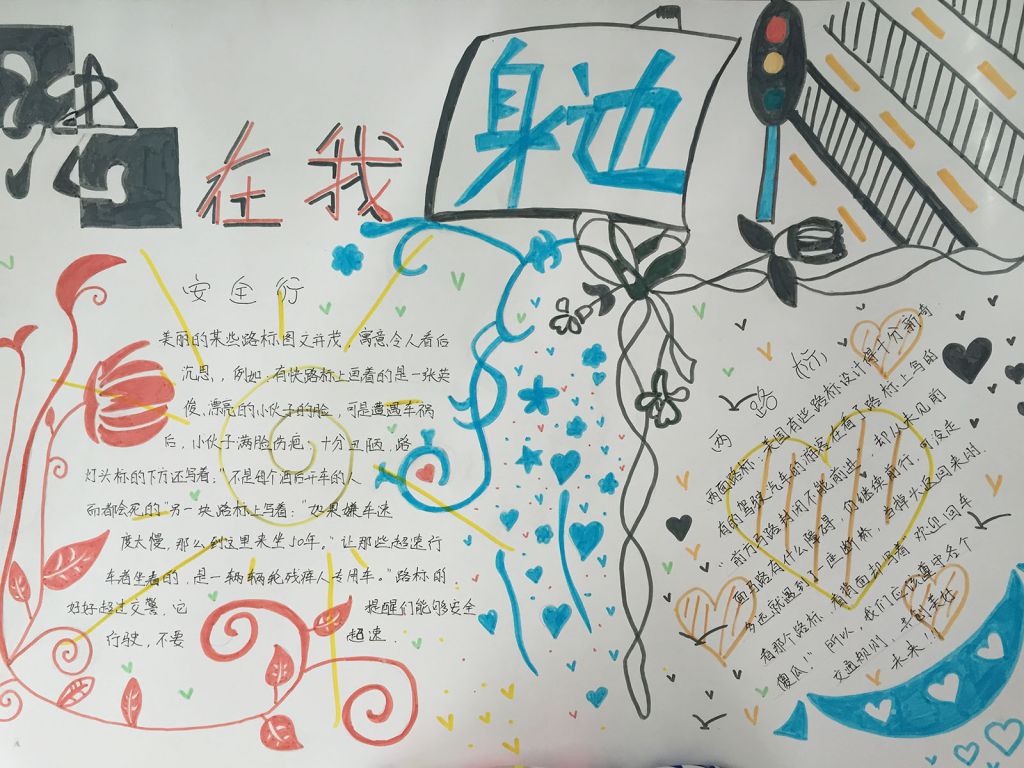 安全
在我
身边
安全行
美丽的某些路标图文并茂，寓意令人看后
沉思，例如：有快路标上画着的是一张英
俊、漂亮的小伙子的脸，可是遭遇车祸
后，小伙子满脸伤疤，十分丑陋，路
灯头标的下方还写着："不是每个酒后开车的人
而都会死的"另一块路标上写着："如果嫌车速
度太慢，那么到这里来坐50年。"让那些超速行
车者坐着的，是一辆辆轮残疾人专用车。"路标的
好好超过交警，它 提醒们能够安全
行驶，不要 超速
两路标
两面路标，美国有些路标设计得十分新奇
有的驾驶汽车的旅客在看了路标上写的
"前方马路封闭不能前进"，却从未见的
面马路有什么障碍，仍继续前行，可没走
多远就遇到了一座断桥，当掉头返回来时，
看那个路标，看背面却写着"欢迎回来
傻瓜！"所以，我们应该遵守各个
交通规则，走到美好
未来！！！